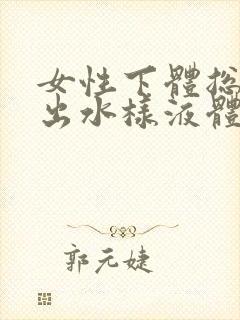 女性下體總
出水樣液體
郭元婕